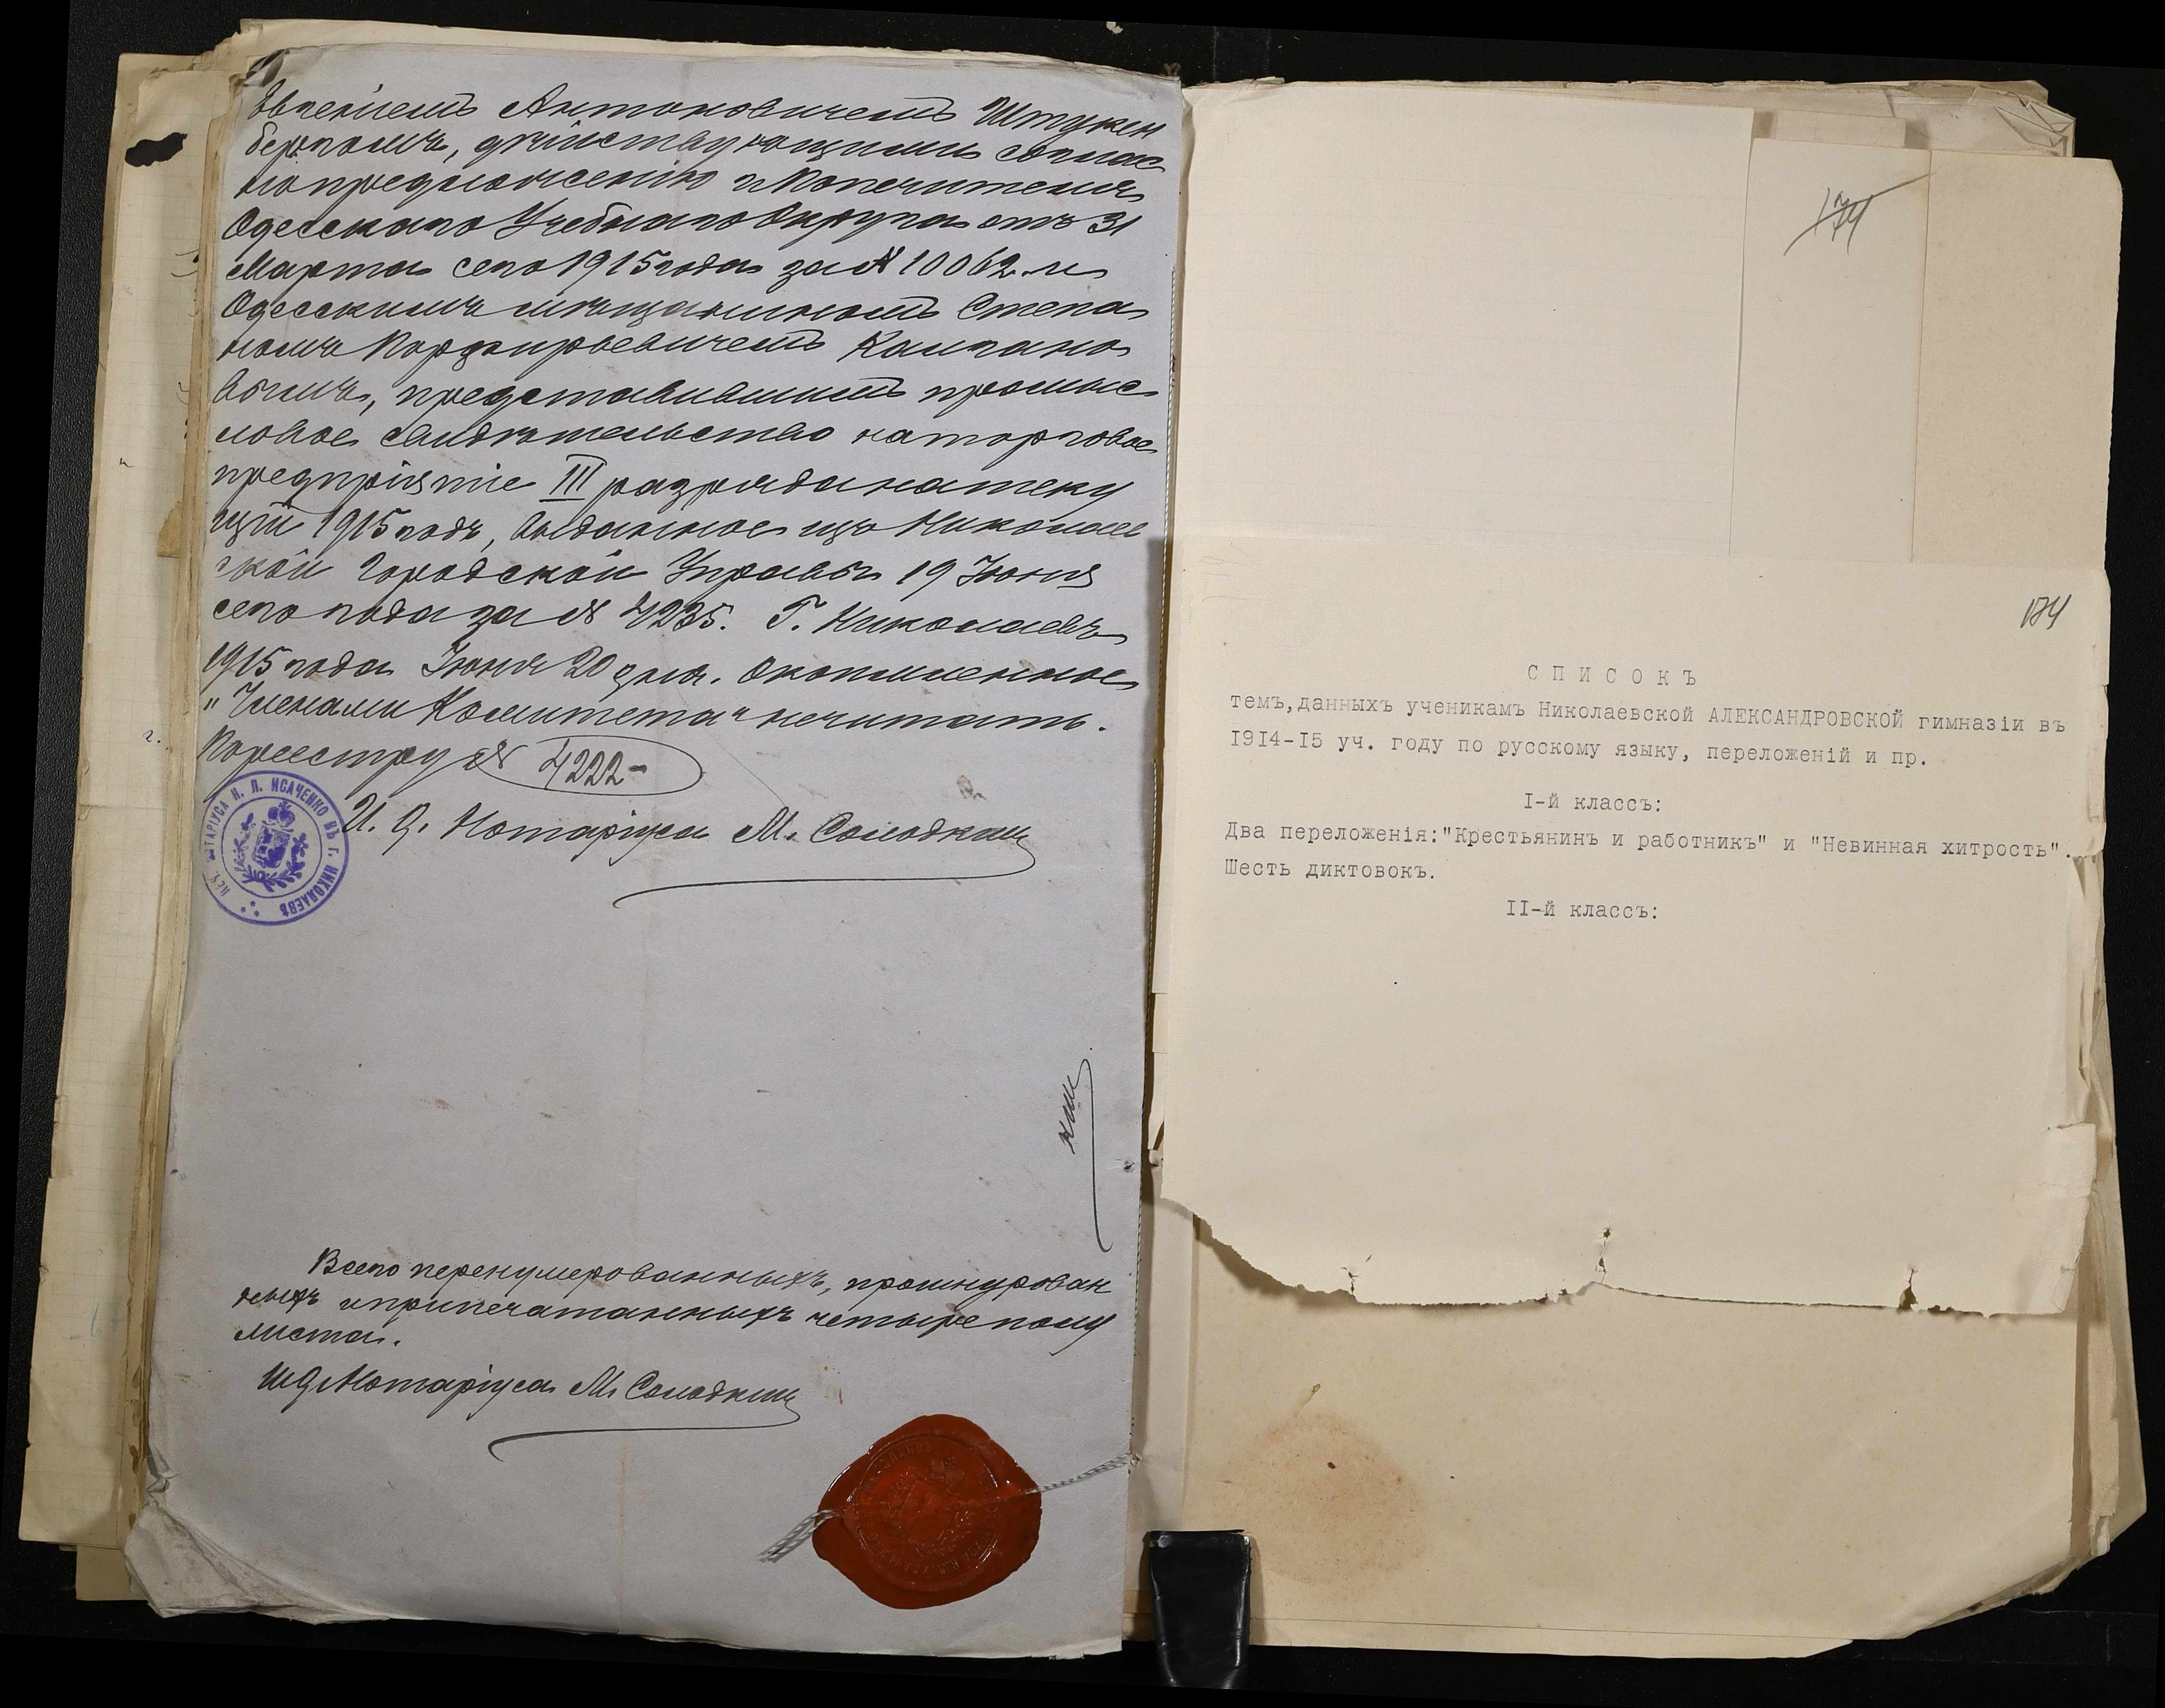 Евгеніемъ Антоновичемъ Штукен
бергомъ, дѣйствующими соглас
но предложенію г. Попечителя
Одесскаго Учебнаго Округа отъ 31
Марта сего 1915 года за № 10062 и
Одесскимъ мѣщаниномъ Степа
номъ Порфирьевичемъ Калпако
вымъ, представившимъ промыс
ловое свидѣтельство на торговое
предпріятіе III разряда на теку
щій 1915 годъ, выданное изъ Николаев
ской Городской Управы 19 Іюня
сего года за № 4235. Г. Николаевъ
1915 года Іюня 20 дня.
"Членами Комитета" не читать.
По реестру № 4222-
И. д. Нотаріуса М. Солодкин
ПЕЧ. НОТАРІУСА Н. Л. ИСАЧЕНКО ВЪ Г. НИКОЛАЕВѢ
Всего перенумерованныхъ, прошнурован
ныхъ и припечатанныхъ четыре полу
листа.
И д Нотаріуса М. Солодкин
174
174
СПИСОКЪ
темъ,данныхъ ученикамъ Николаевской АЛЕКСАНДРОВСКОЙ гимназіи въ
1914-15 уч. году по русскому языку, переложеній и пр.
I-й классъ:
Два переложенія:"Крестьянинъ и работникъ" и "Невинная хитрость".
Шесть диктовокъ.
II-й классъ: